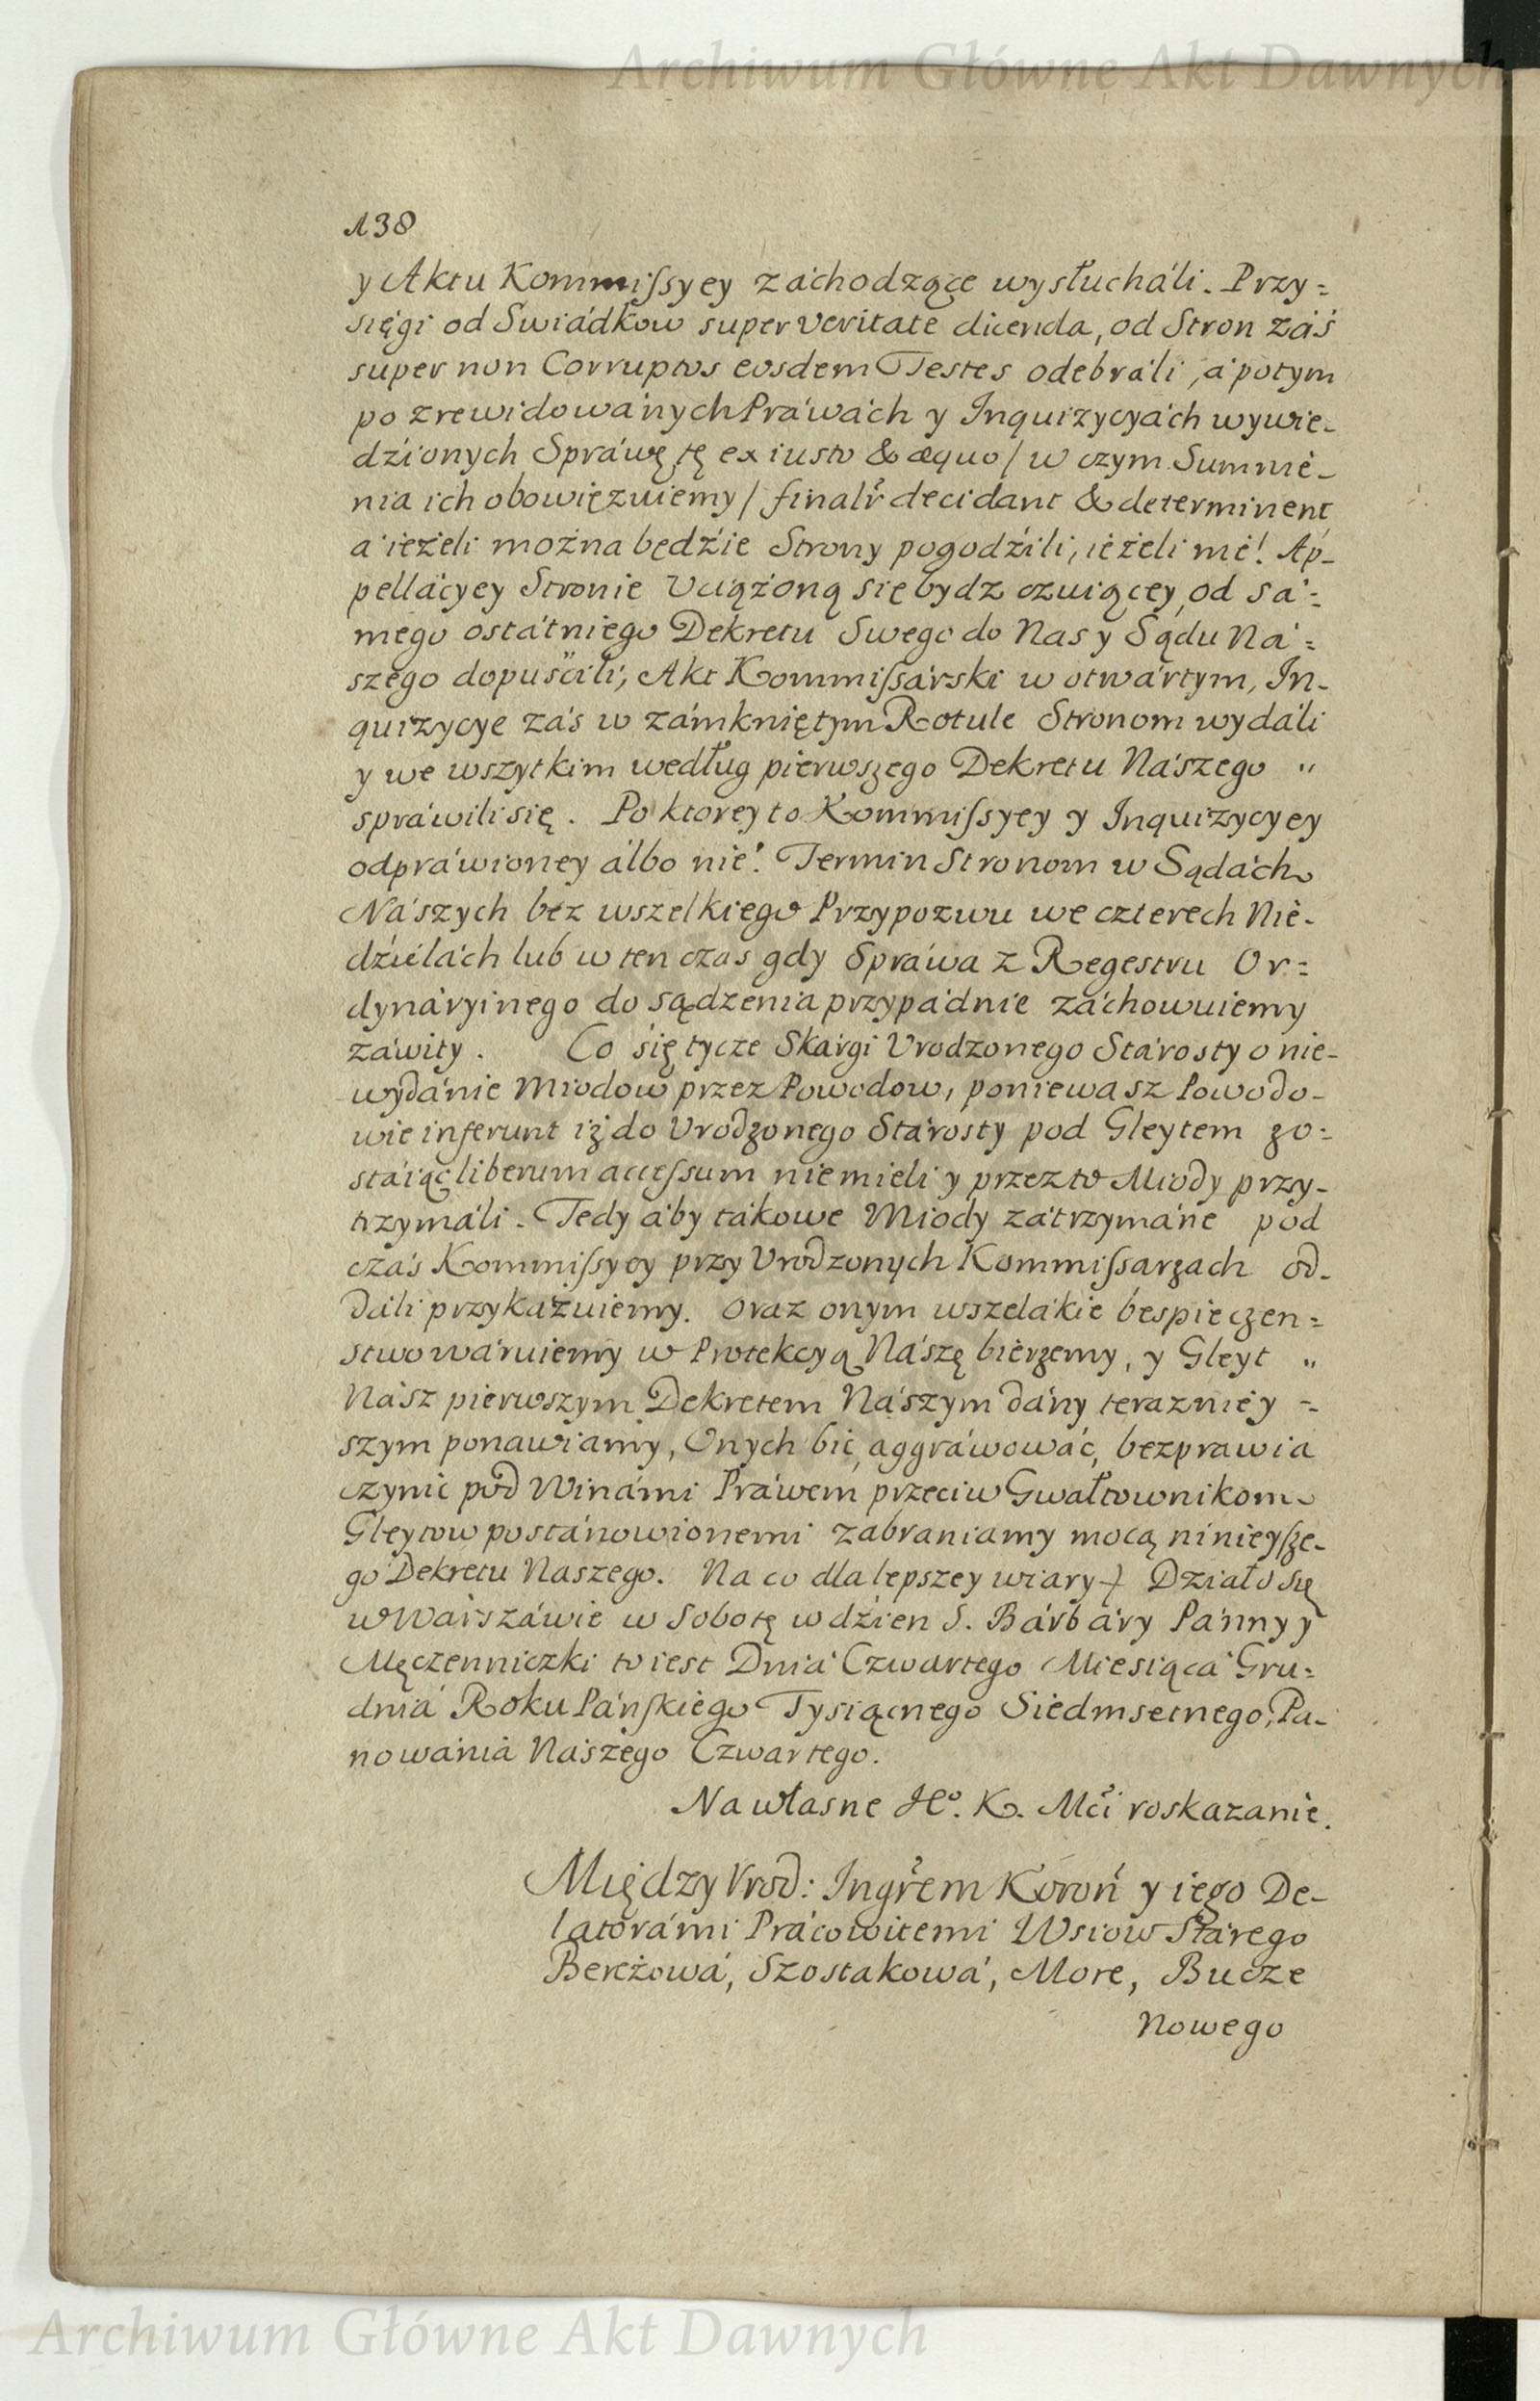 Archiwum Główne Akt Dawnych
138
y Aktu Kommiſsyey záchodzące wysłucháli. Przy=
sięgi od Swiádkow super veritate dicenda, od Stron záś
super non Corruptos eosdem Testes odebráli, á potym
po zrewidowánych Práwách y Inquizycyách wywie-
dźionych Spráwę tę ex iusto & æquo / w czym Summie-
nia ich obowięzuiemy / finalr̃ decidant & determinent
a ieżeli można będźie Strony pogodźili, ieżeli nie! Ap-
pellácyey Stronie Uciążoną się bydz czuiącey, od sá=
mego ostátniego Dekretu Swego do Nas y Sądu Ná=
szego dopuścili, Akt Kommiſsárski w otwártym, In-
quizycye záś w zámkniętym Rotule Stronom wydáli
y we wszytkim według pierwszego Dekretu Nászego "
spráwili się. Po ktorey to Kommiſsyey y Inquizycyey
odpráwioney álbo nie! Termin Stronom w Sądách
Nászych bez wszelkiego Przypozwu we czterech Nie-
dźielách lub w ten czas gdy Spráwa z Regestru Or=
dynáryinego do sądzenia przypádnie záchowuiemy
záwity. Co się tycze Skárgi Urodzonego Stárosty o nie-
wydánie Miodow przez Powodow, poniewasz Powodo-
wie inferunt iż do Urodzonego Stárosty pod Gleytem zo=
stáiąc liberum acceſsum nie mieli y przez to Miody przy-
trzymáli. Tedy áby tákowe Miody zátrzymáne pod
czás Kommiſsyey przy Urodzonych Kommiſsarzach od-
dáli przykázuiemy. Oraz onym wszelákie bespieczen=
stwo wáruiemy w Protekcyą Nászę bierzemy, y Gleyt "
Nász pierwszym Dekretem Nászym dány terazniey =
szym ponawiamy, Onych bić, aggráwowáć, bezprawia
czynić pod Winámi Práwem przeciw Gwałtownikom
Gleytow postánowionemi zabraniamy mocą ninieyſze-
go Dekretu Naszego. Na co dla lepszey wiary ⨍ Działo się
w Wárszáwie w Sobotę w dźien S. Bárbáry Pánny y
Męczenniczki to iest Dniá Czwartego Miesiąca Gru=
dniá Roku Páńſkiego Tysiącnego Siedmsetnego, Pa-
nowániá Nászego Czwartego.
Na własne Jº. K. Mći roskazanie.
Między Urod: Ingr̃em Koroń y iego De-
latorámi Prácowitemi Wsiow Stárego
Bereżowá, Szostakowá, More, Bucze
Nowego
Archiwum Główne Akt Dawnych